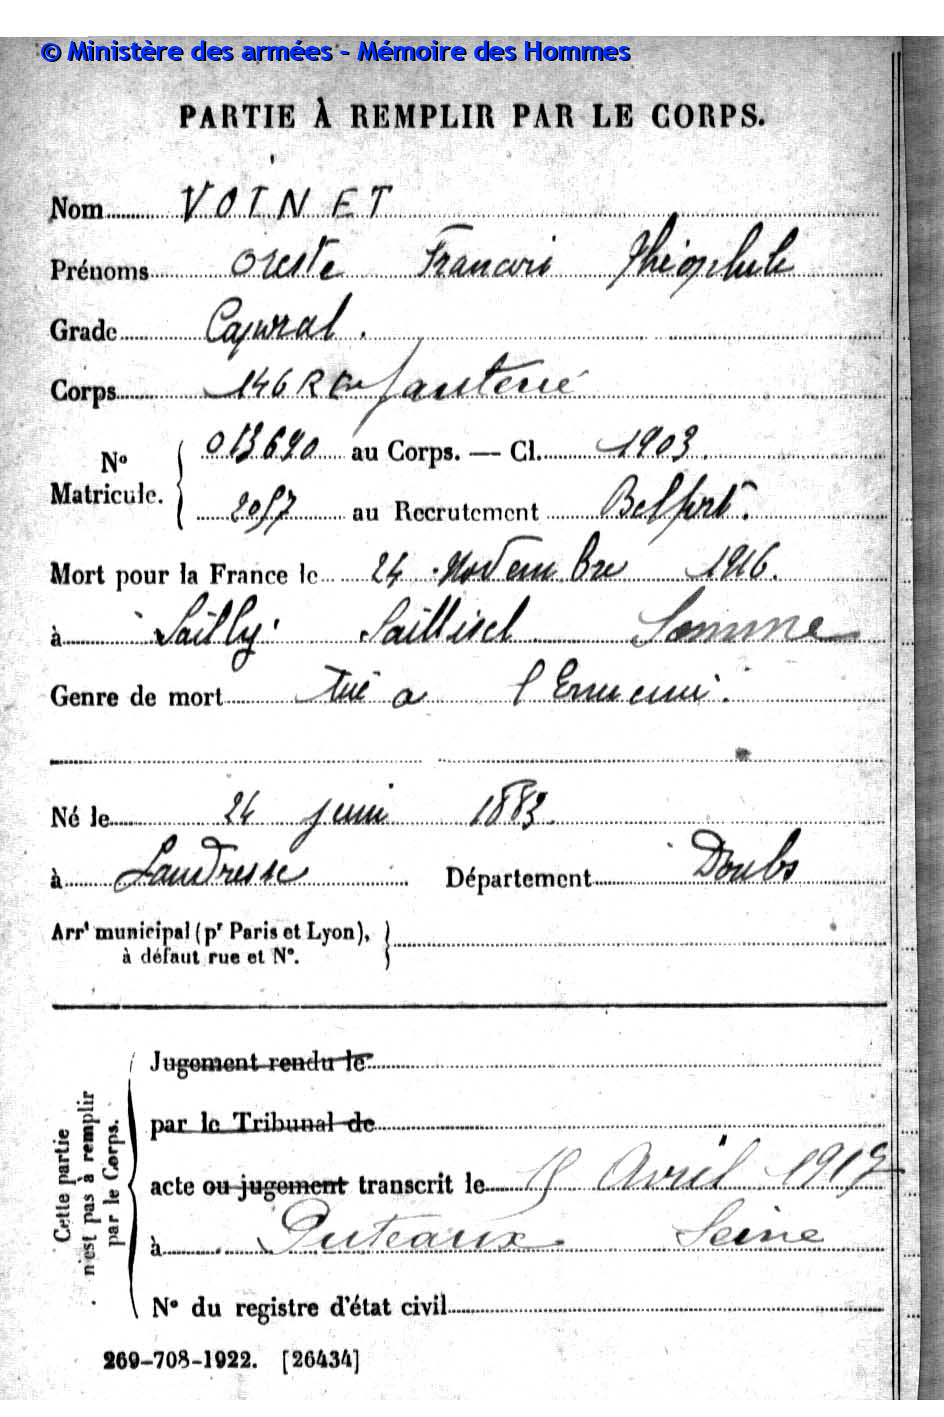 © Ministère des armées - Mémoire des Hommes
PARTIE À REMPLIR PAR LE CORPS.
Nom VOINET
Prénoms Oreste Francois Théophile
Grade Caporal.
Corps 146 R Infanterie
N° Matricule. 013690 au Corps. — Cl. 1903.
2057 au Recrutement Belfort.
Mort pour la France le 24 Novembre 1916.
à Sailly Saillisel Somme
Genre de mort tué a l'Ennemi.
Né le 24 juin 1883
à Landresse Département Doubs
Arrt municipal (pr Paris et Lyon),
à défaut rue et N°.
Cette partie n'est pas à remplir par le Corps.
Jugement rendu le
par le Tribunal de
acte ou jugement transcrit le Avril 1917
à Puteaux Seine
N° du registre d'état civil
269-708-1922. [26434]